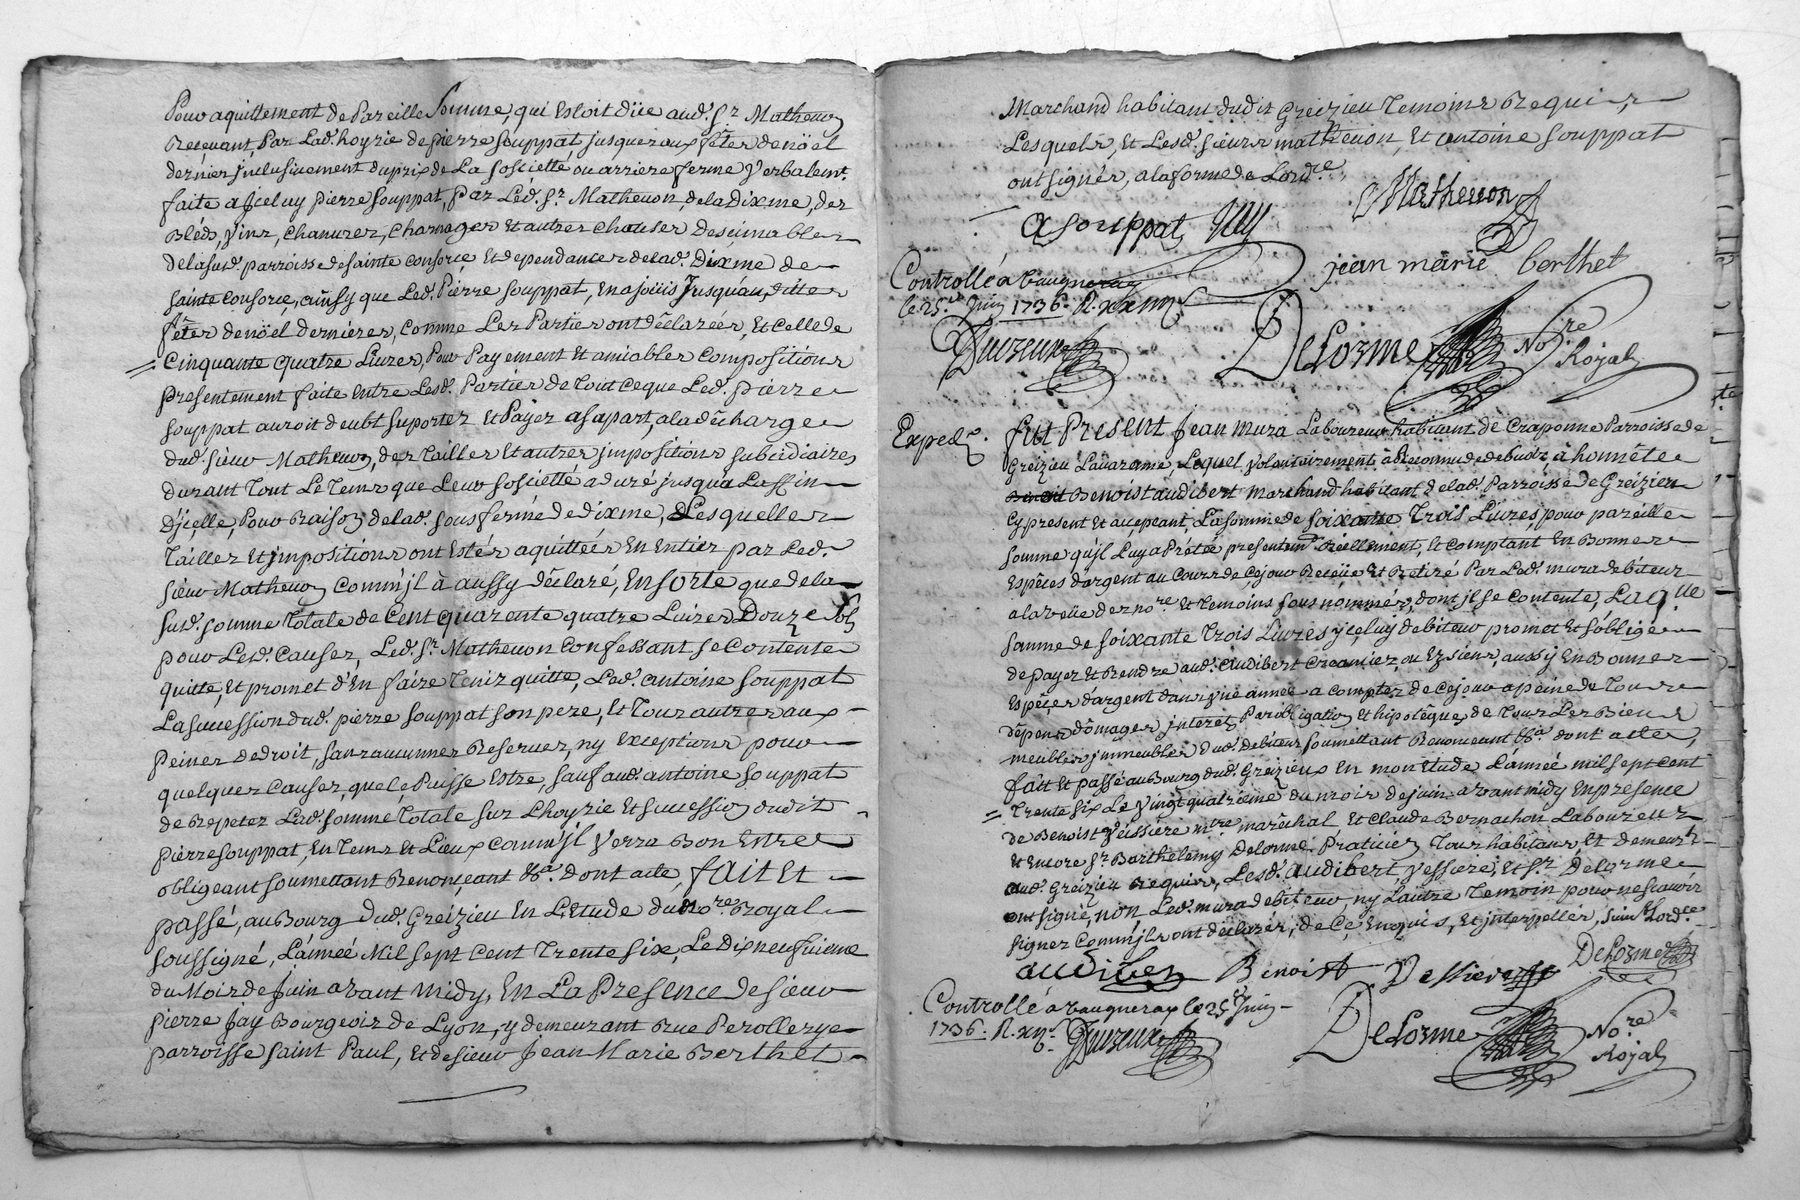 Pour aquittement de Pareille Somme, qui Estoit düe aud. Sr. Matheuon
Recevant, Par Lad. hoyrie de pierre souppat jusques aux fêtes de nöel
dernier jnclusivement du prix de La sociétté ou arriere ferme verbalemt.
faite a Jceluy pierre souppat, par Led. Sr. Matheuon, de la Dixme, des
Bléds, vins, Chanures, Charnages et autres choses decimables
de la sud. parroisse de sainte Consorce, Et dependances de lad. Dixme de
sainte Consorce, ainsy que Led. Pierre souppat, En a joüis Jusqu'au, dittes
fêtes de nöel dernieres, comme Les Parties ont déclarées, Et celle de
Cinquante quatre Livres, Pour Payement Et amiables compositions
presentement faite Entre Lesd. Parties de tout ce que Led. pierre
souppat auroit deubt suporter Et Payer a sa part, a la décharge
dud. sieur Matheuon, des tailles Et autres jmpositions subcidiaires
durant tout Le tems que Leur sociétté a duré jusqu'à La ffin
d'jcelle, Pour Raison de lad. sous ferme de dixme, Lesquelles
tailles Et jmpositions ont Estés aquittées En Entier par Led.
sieur Matheuon comm'jl à aussy déclaré, En sorte que de la
sud. somme totale de Cent quarente quatre Livres Douze sols
pour Les d. Causes, Led. Sr. Matheuon Confessant se Contente
quitte, Et promet d'En faire tenir quitte, Led. antoine souppat
La succession dud. pierre souppat son pere, Et tous autres aux
Peines de droit, sans aucunnes Reserves, ny Exceptions pour
quelques Causes, que le Puisse Estre, sauf aud. antoine souppat
de Repeter Lad. somme totale sur L'hoyrie Et succession dudit
pierre souppat, En tems Et Lieux comm'jl verra Bon Estre
obligeant soumettant Renonçant &a. Dont acte, fait Et
passé, au Bourg dud. Greizieu En L'Etude du nore. Royal
soussigné, L'année Mil sept Cent trente six, Le dix neufvieme
du Mois de Juin avant midy, En La Presence de sieur
pierre Jay Bourgeois de Lyon, y demeurant Rue Perollerye
parroisse saint Paul, Et de sieur Jean Marie Berthet
Marchand habitant dudit Greizieu temoins Requis,
Lesquels, Et Lesd. sieurs matheuon, Et antoine souppat
ont signés, a la forme de L'ordce.
Matheuon
a souppat Jay
jean marie berthet
Controllé a Vaugneray
le 25e. Juin 1736. R.
Delorme Nore.
Royal
Exped.
fut Present Jean mura Laboureur habitant de Craponne Parroisse de
Greizieu Lavarenne, Lequel volontairement à Reconnu de debvoir, à honnête
Benoist audibert marchand habitant de lad. Parroisse de Greizieu
Cy present Et acçeptant, La somme de soixante trois Livres, pour pareille
somme qu'jl Luy a Prétée presentemt. Réellement, Et comptant En Bonnes
Espéces d'argent au Cours de Cejour Reçeüe Et Retiré Par Led. mura debiteur
a la veüe des nore. Et temoins sous nommés, dont jl se Contente, Laqlle
somme de soixante trois Livres jceluy debiteur promet Et s'oblige
de payer Et Rendre aud. audibert Creançier, ou Ez siens, aussy En Bonnes
Espéces d'argent dans vne année a compter de Cejour a peine de tous
dépens dômages jnterets Par obligation Et hipotéque de tous Les Biens
meubles jmmeubles dud. debiteur soumettant Renonceant &a. dont acte,
fait Et passé au Bourg dud. Greizieux En mon Etude L'année mil sept cent
trente six Le vingt quatrieme du mois de juin avant midy En presence
de Benoist Veissiere mtre maréchal Et Claude Bernachon Laboureurs
Et Encore Sr. Barthelemy Delorme Praticien tous habitans, Et demeurts.
aud. Greizieu Requis, Lesd. audibert, veissiere, Et Sr. Delorme
ont signé, non Led. mura debiteur, ny L'autre temoin pour ne sçavoir
signer Comm'jls ont déclarés, de Ce Enquis, Et jnterpellés, suivt. Lordce.
Delorme
audiber Benoist Vessiere
Controllé a Vaugneray le 25e. Juin
1736. R.
Delorme Nore.
Royal